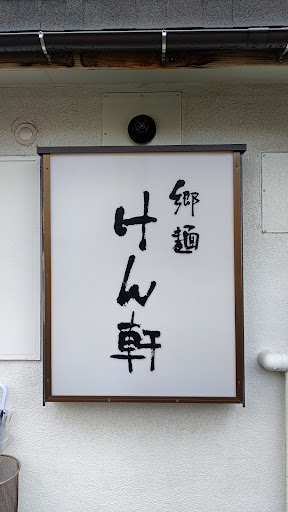 郷麺
けん軒